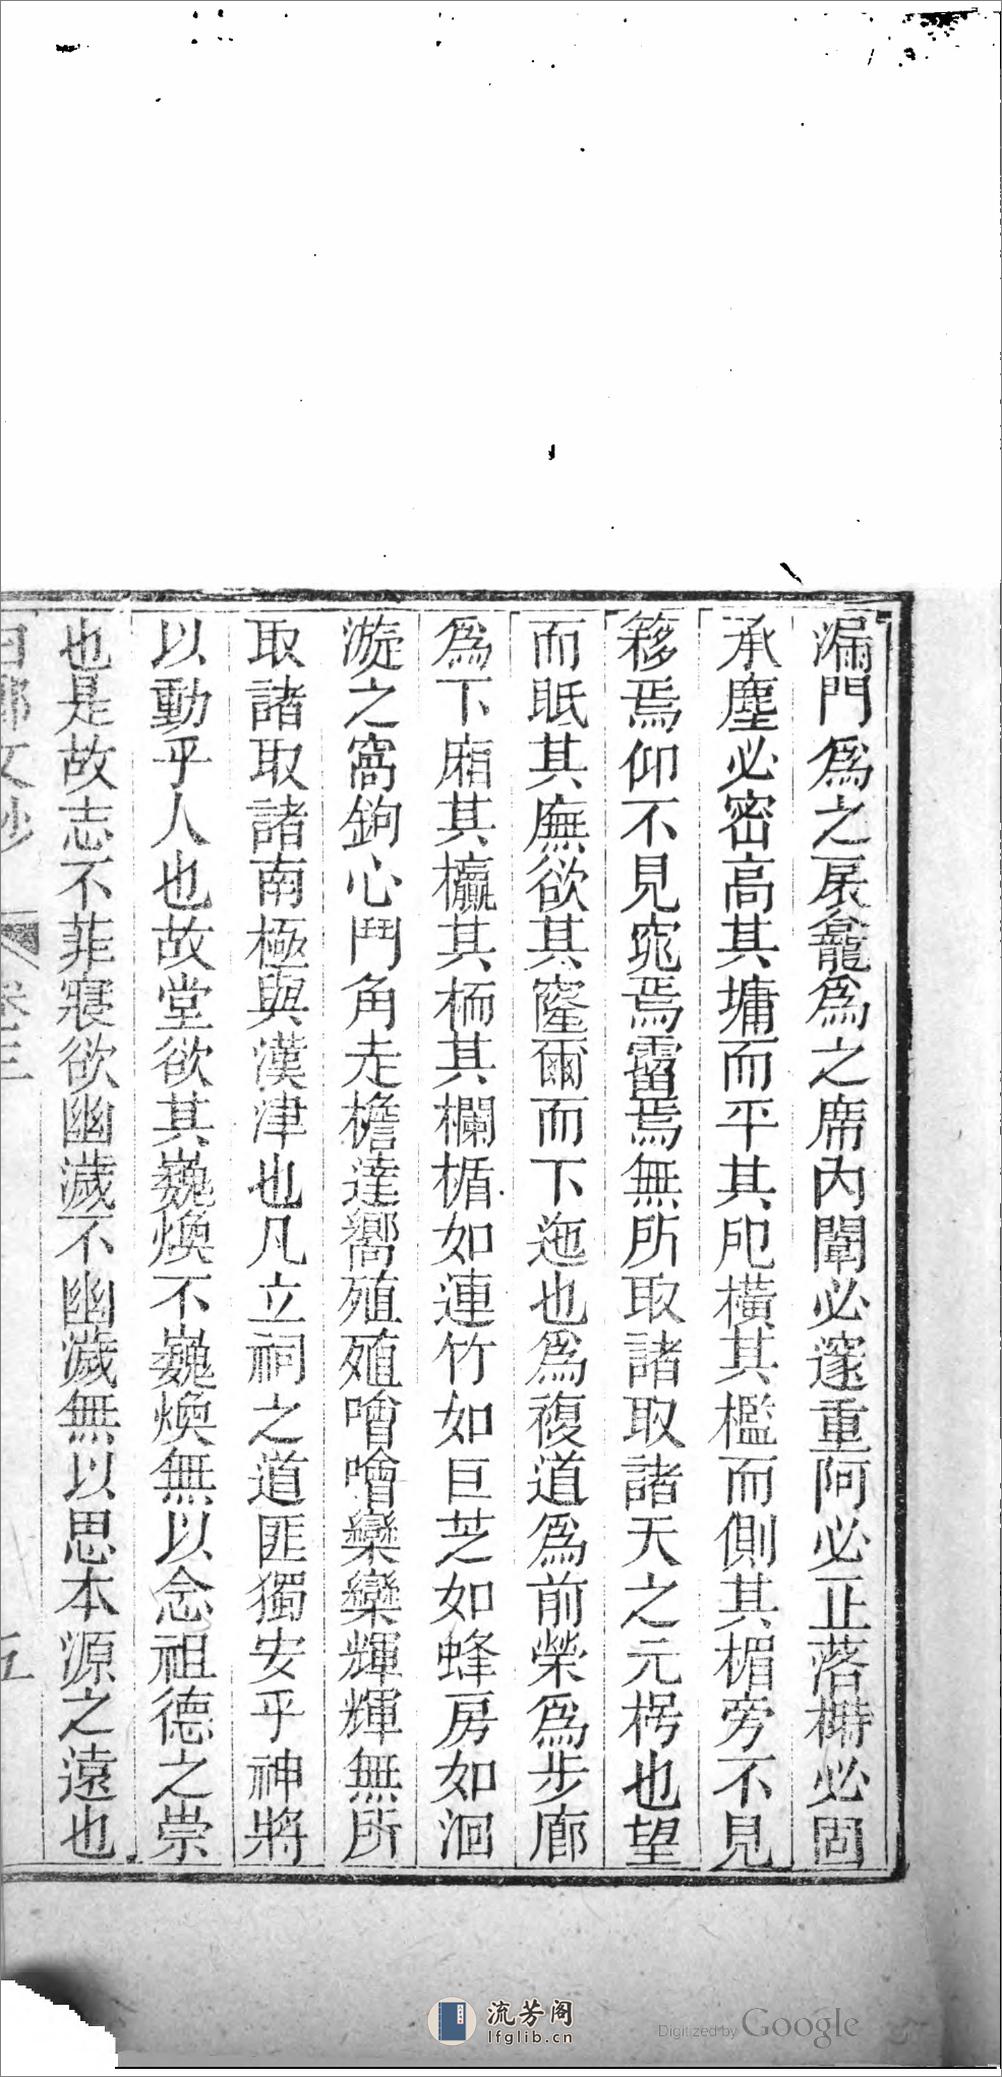 漏門爲之扆龕爲之席內闈必邃重阿必正落榯必固
承塵必密高其墉而平其戺橫其檻而側其楣旁不見
簃焉仰不見窕焉霤焉無所取諸取諸天之元枵也望
而眂其廡欲其窿爾而下迤也爲複道爲前榮爲步廊
爲下廂其欞其栭其欄楯如連竹如巨芝如蜂房如洄
漩之窩鉤心鬥角走檐達嚮殖殖噲噲欒欒輝輝無所
取諸取諸南極與漢津也凡立祠之道匪獨安乎神將
以動乎人也故堂欲其巍煥不巍煥無以念祖德之崇
也是故志不菲寢欲幽濊不幽濊無以思本源之遠也
文鈔 卷三 五
流芳阁
lfglib.cn
Digitized by Google